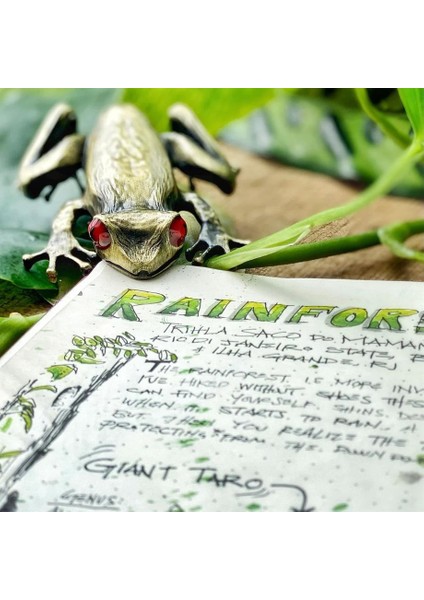 RAINFOR
TRILHA SACO DO MAMAN
RIO DI JANEIRO STATE, B
+ ILHA GRANDE, RJ
THE RAINFOREST IS MORE INV
I'VE HIKED WITHOUT SHOES THES
CAN FIND YOURSELF
WHEN IT STARTS TO RAIN. A
BUT THEN YOU REALIZE THE
PROTECTING FROM THE DOWNPO
GIANT TARO
GENUS: